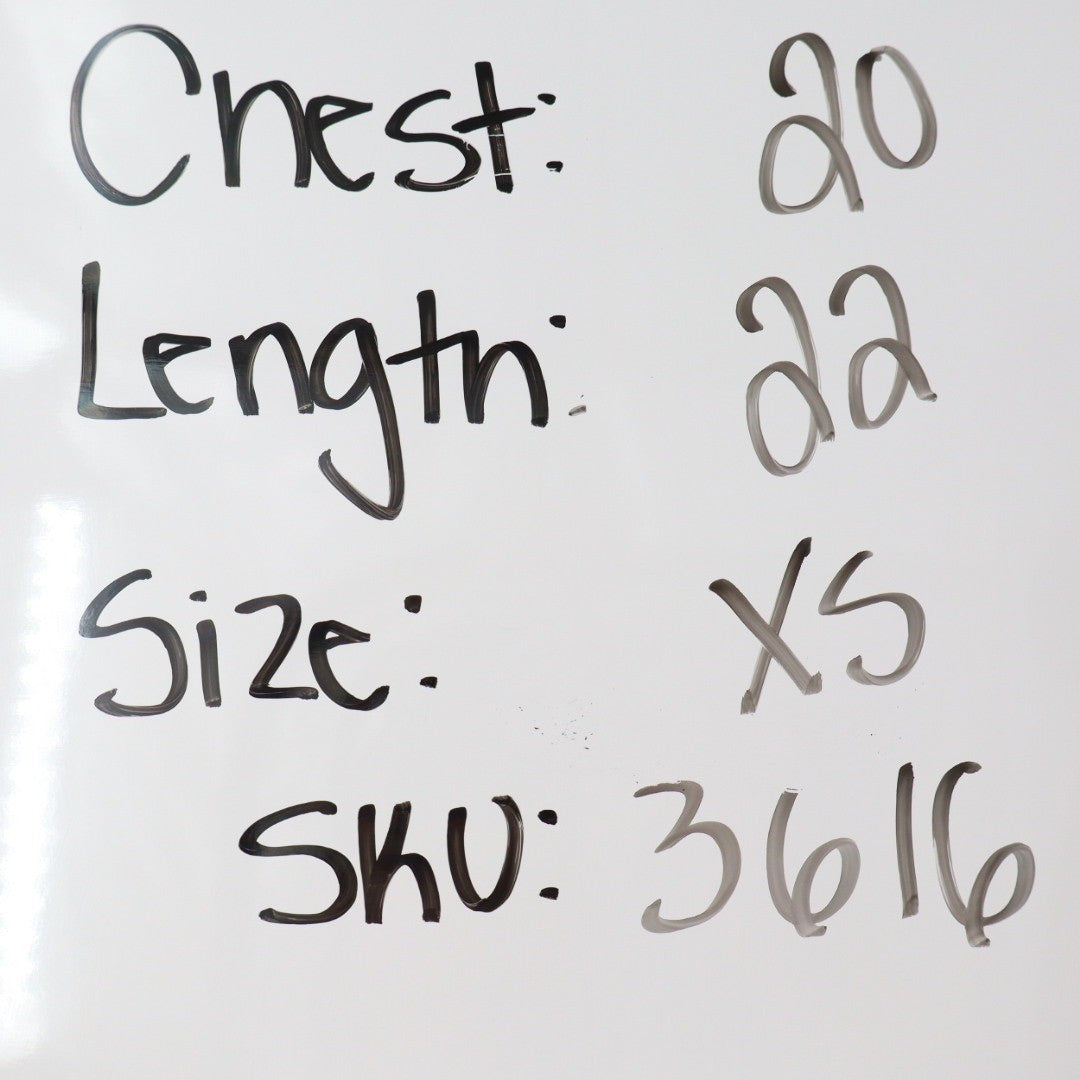 Chest: 20
Length: 22
Size: XS
SKU: 3616